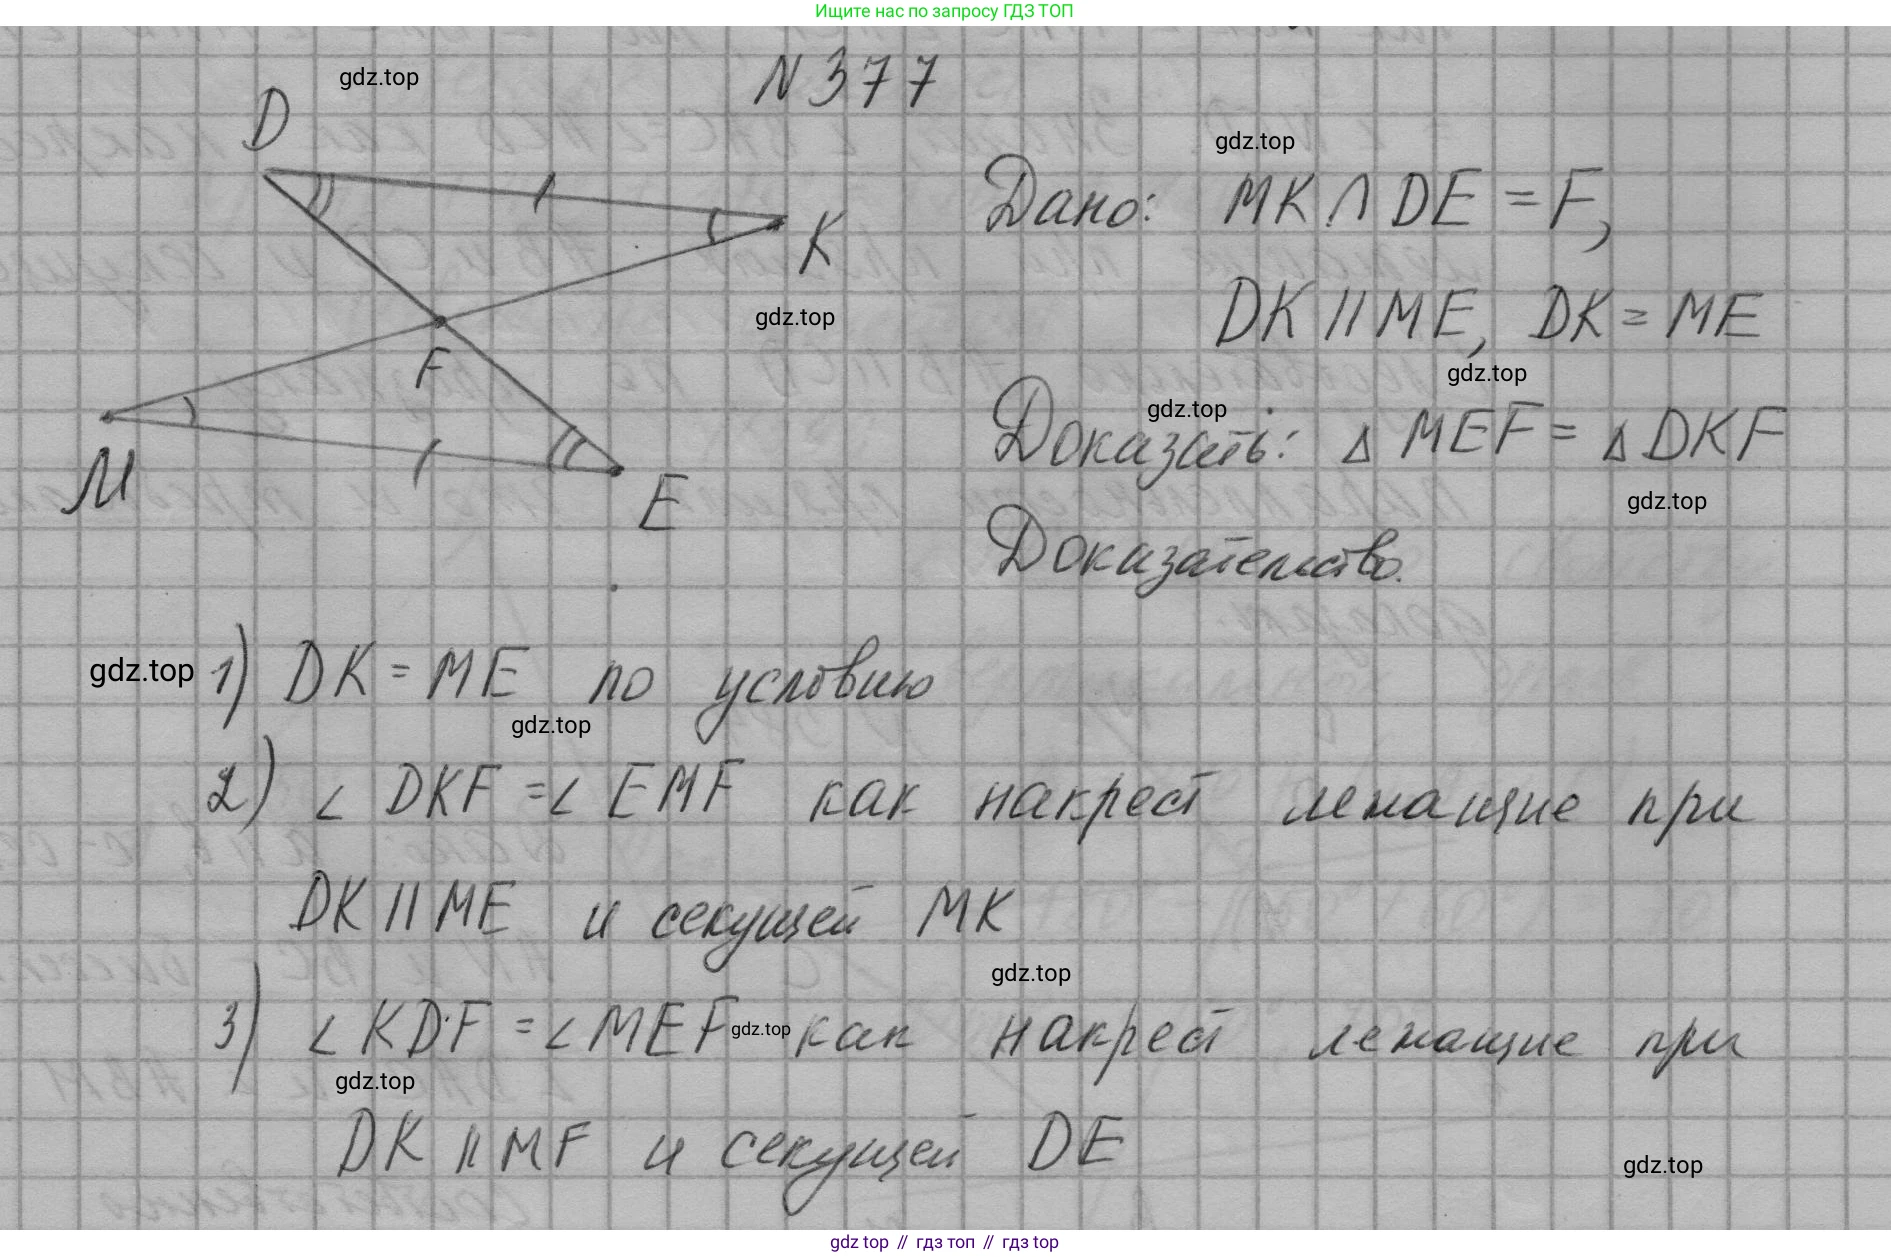 Ищите нас по запросу ГДЗ ТОП
N 377
gdz.top
D
K
F
M
E
gdz.top
Дано: MK ∩ DE = F,
gdz.top
DK || ME, DK = ME
gdz.top
gdz.top
Доказать: △ MEF = △ DKF
gdz.top
Доказательство.
gdz.top 1) DK = ME по условию
gdz.top
2) ∠ DKF = ∠ EMF как накрест лежащие при
DK || ME и секущей MK
gdz.top
3) ∠ KDF = ∠ MEF gdz.top как накрест лежащие при
gdz.top
DK || MF и секущей DE
gdz.top
gdz top // гдз топ // гдз top